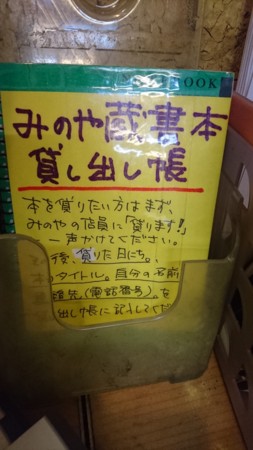 BOOK
みのや蔵書本
貸し出し帳
本を貸りたい方はまず、
みのやの店員に「貸ります!」
一声かけてください。
後、貸りた日にち。
タイトル。自分の名前
絡先(電話番号)。を
出し帳に記入してくだ